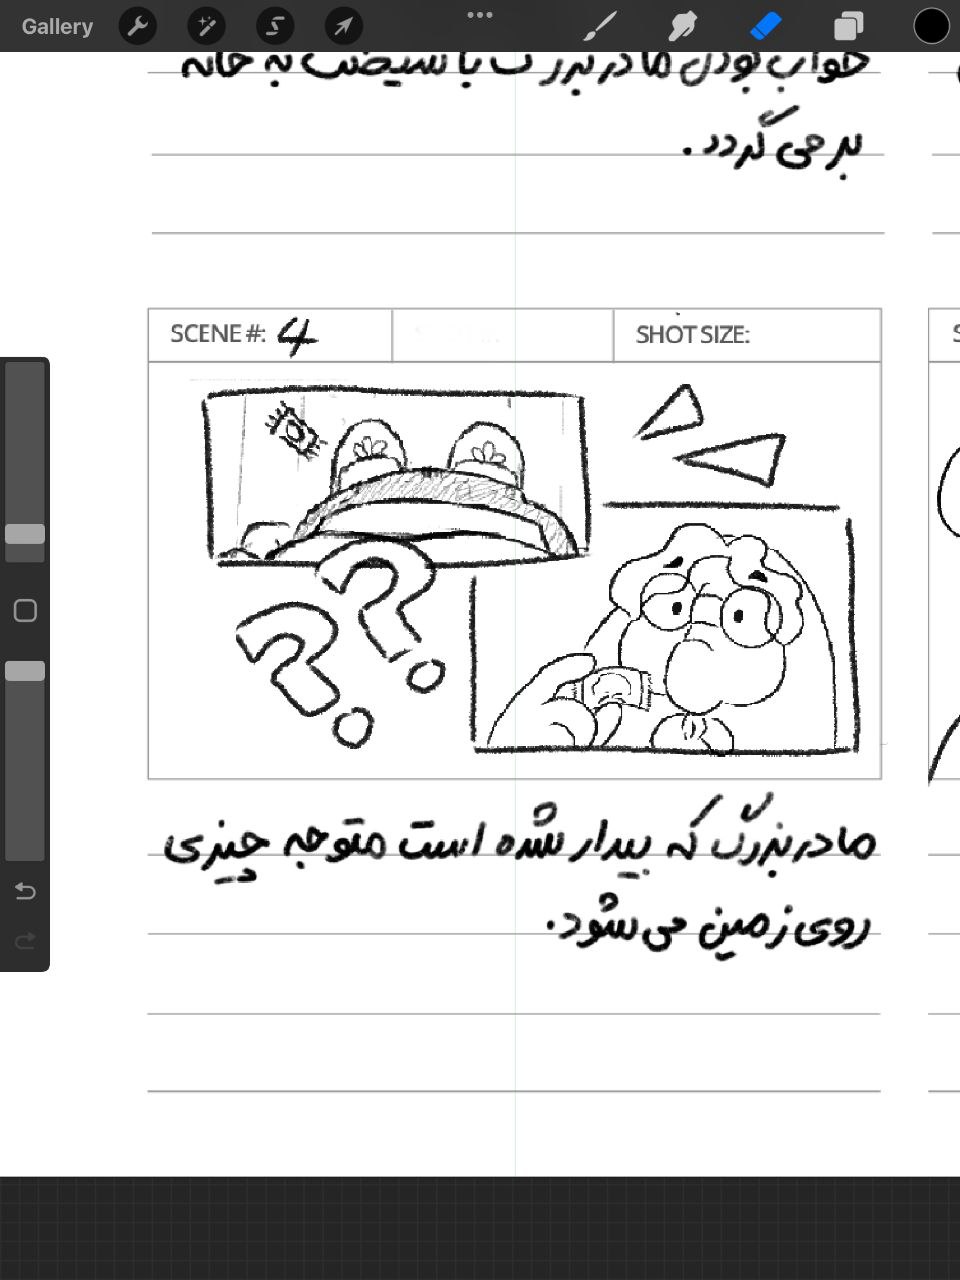 Gallery
خواب بودن مادربزرگ با سیصد به خانه
بر می گردد.
SCENE #: 4
SHOT SIZE:
S
مادربزرگ که بیدار شده است متوجه چیزی
روی زمین می شود.
??